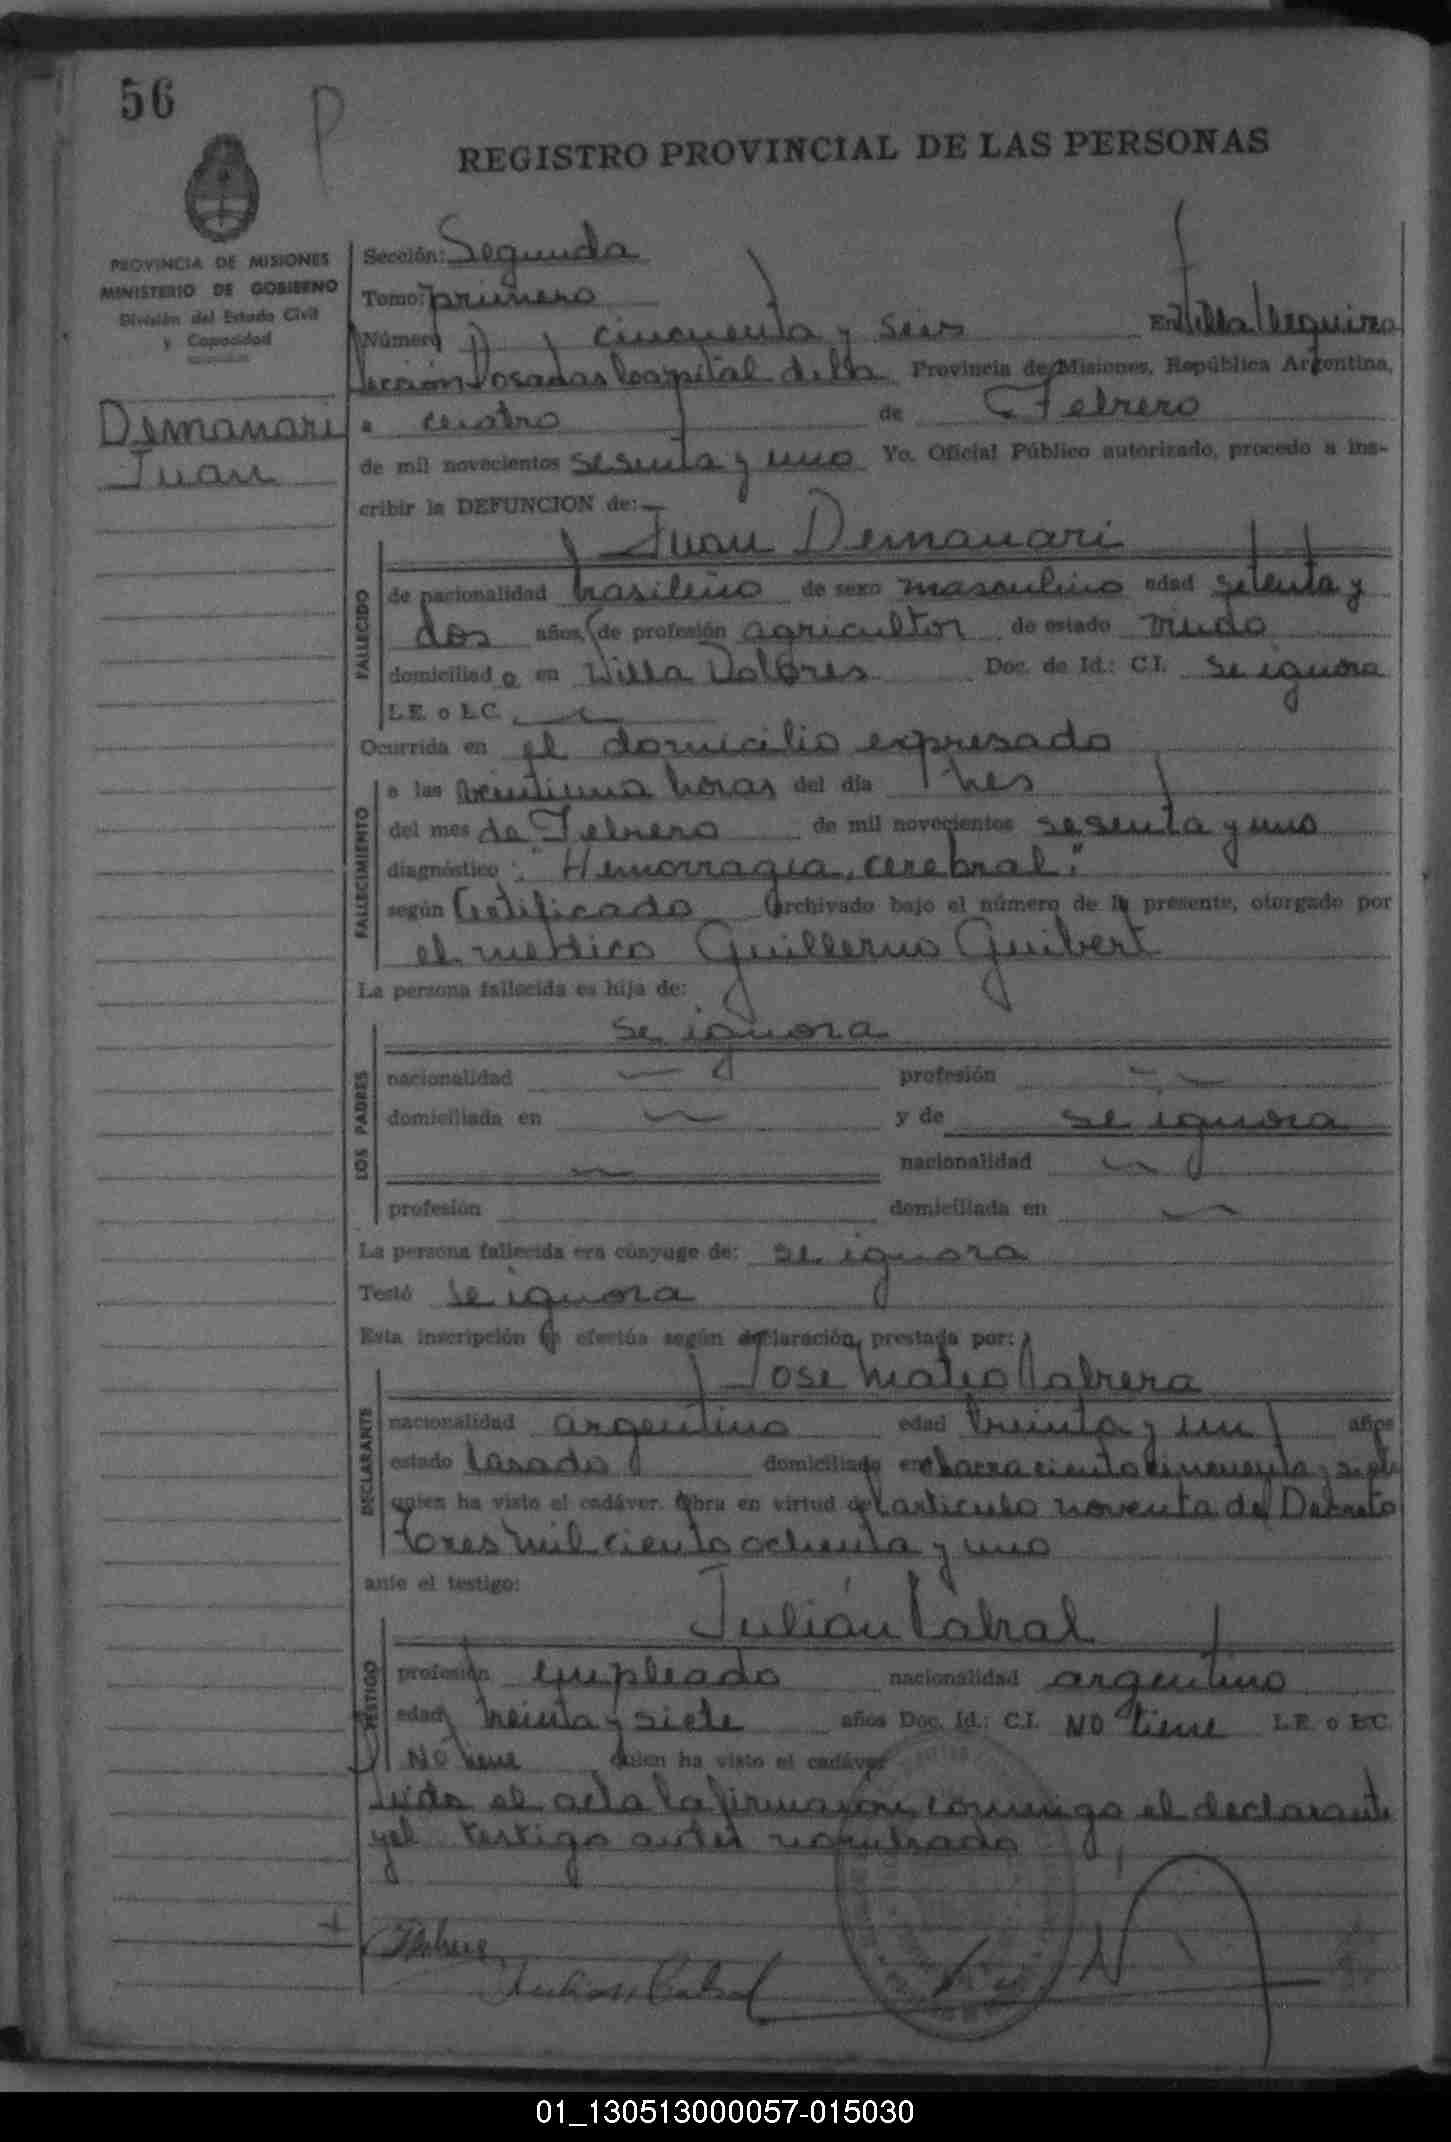 56
P
REGISTRO PROVINCIAL DE LAS PERSONAS
PROVINCIA DE MISIONES
MINISTERIO DE GOBIERNO
División del Estado Civil
y Capacidad
Demanari
Juan
Sección: Segunda
Tomo: primero
Número cincuenta y seis En Villa Urquiza
Sección Posadas Capital de la Provincia de Misiones, República Argentina,
a cuatro de Febrero
de mil novecientos sesenta y uno Yo, Oficial Público autorizado, procedo a ins-
cribir la DEFUNCION de:
Juan Demanari
FALLECIDO
de nacionalidad brasileño de sexo masculino edad setenta y
dos años, de profesión agricultor de estado viudo
domiciliado en Villa Dolores Doc. de Id.: C.I. se ignora
L.E. o L.C.
Ocurrida en el domicilio expresado
FALLECIMIENTO
a las veintiuna horas del día tres
del mes de Febrero de mil novecientos sesenta y uno
diagnóstico: "Hemorragia cerebral."
según Certificado archivado bajo el número de la presente, otorgado por
el medico Guillermo Guibert
La persona fallecida es hija de:
se ignora
LOS PADRES
nacionalidad profesión
domiciliada en y de se ignora
nacionalidad
profesión domiciliada en
La persona fallecida era cónyuge de: se ignora
Testó se ignora
Esta inscripción se efectúa según declaración prestada por:
Jose Mateo Cabrera
DECLARANTE
nacionalidad argentino edad treinta y un años
estado Casado domiciliado en chacra ciento cincuenta y siete
quien ha visto el cadáver. Obra en virtud del articulo noventa del Decreto
tres mil ciento ochenta y uno
ante el testigo:
Julián Cabral
TESTIGO
profesión empleado nacionalidad argentino
edad treinta y siete años Doc. Id.: C.I. No tiene L.E. o L.C.
No tiene quien ha visto el cadáver
Leida el acta la firmaron conmigo el declarante
y el testigo antes nombrado
Julian Cabral
01_130513000057-015030